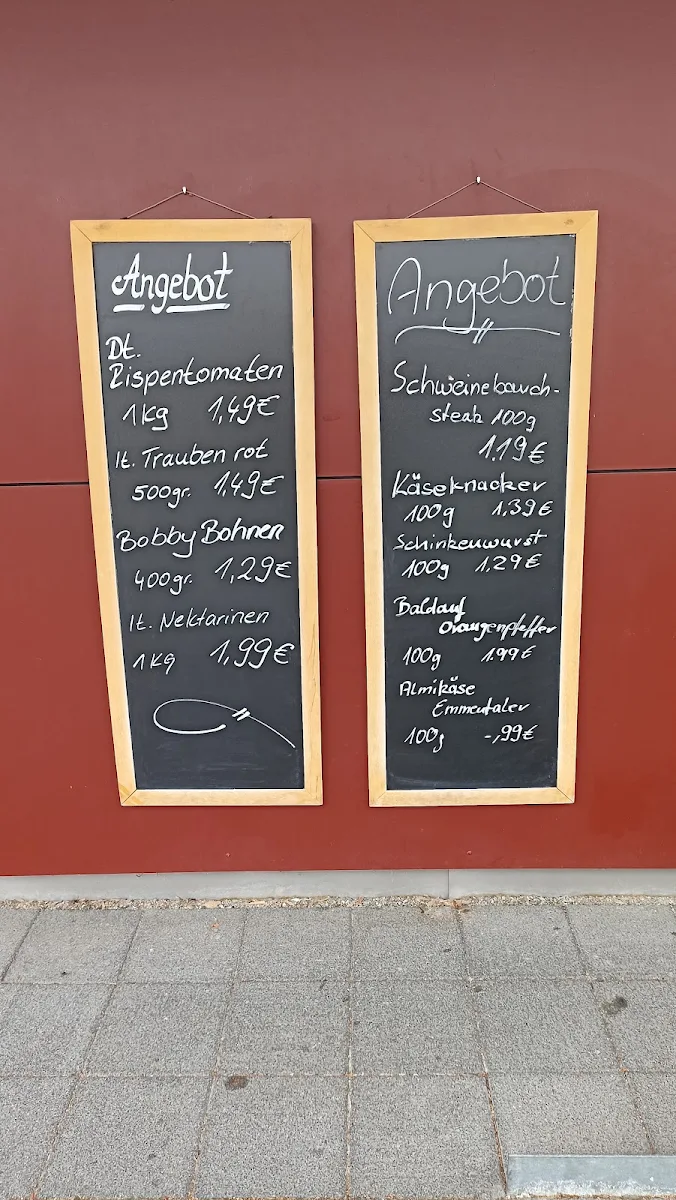 Angebot
Dt.
Rispentomaten
1Kg 1,49€
It. Trauben rot
500gr. 1,49€
Bobby Bohnen
400gr. 1,29€
It. Nektarinen
1Kg 1,99€
Angebot
Schweinebauch-
steak 100g
1.19€
Käseknacker
100g 1,39€
Schinkenwurst
100g 1.29€
Baldauf
Orangenpfeffer
100g 1.99€
Almikäse
Emmentaler
100g -,99€